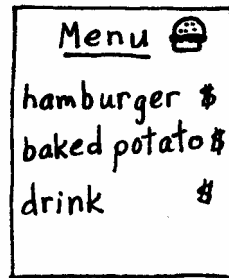 Menu
hamburger $
baked potato $
drink $